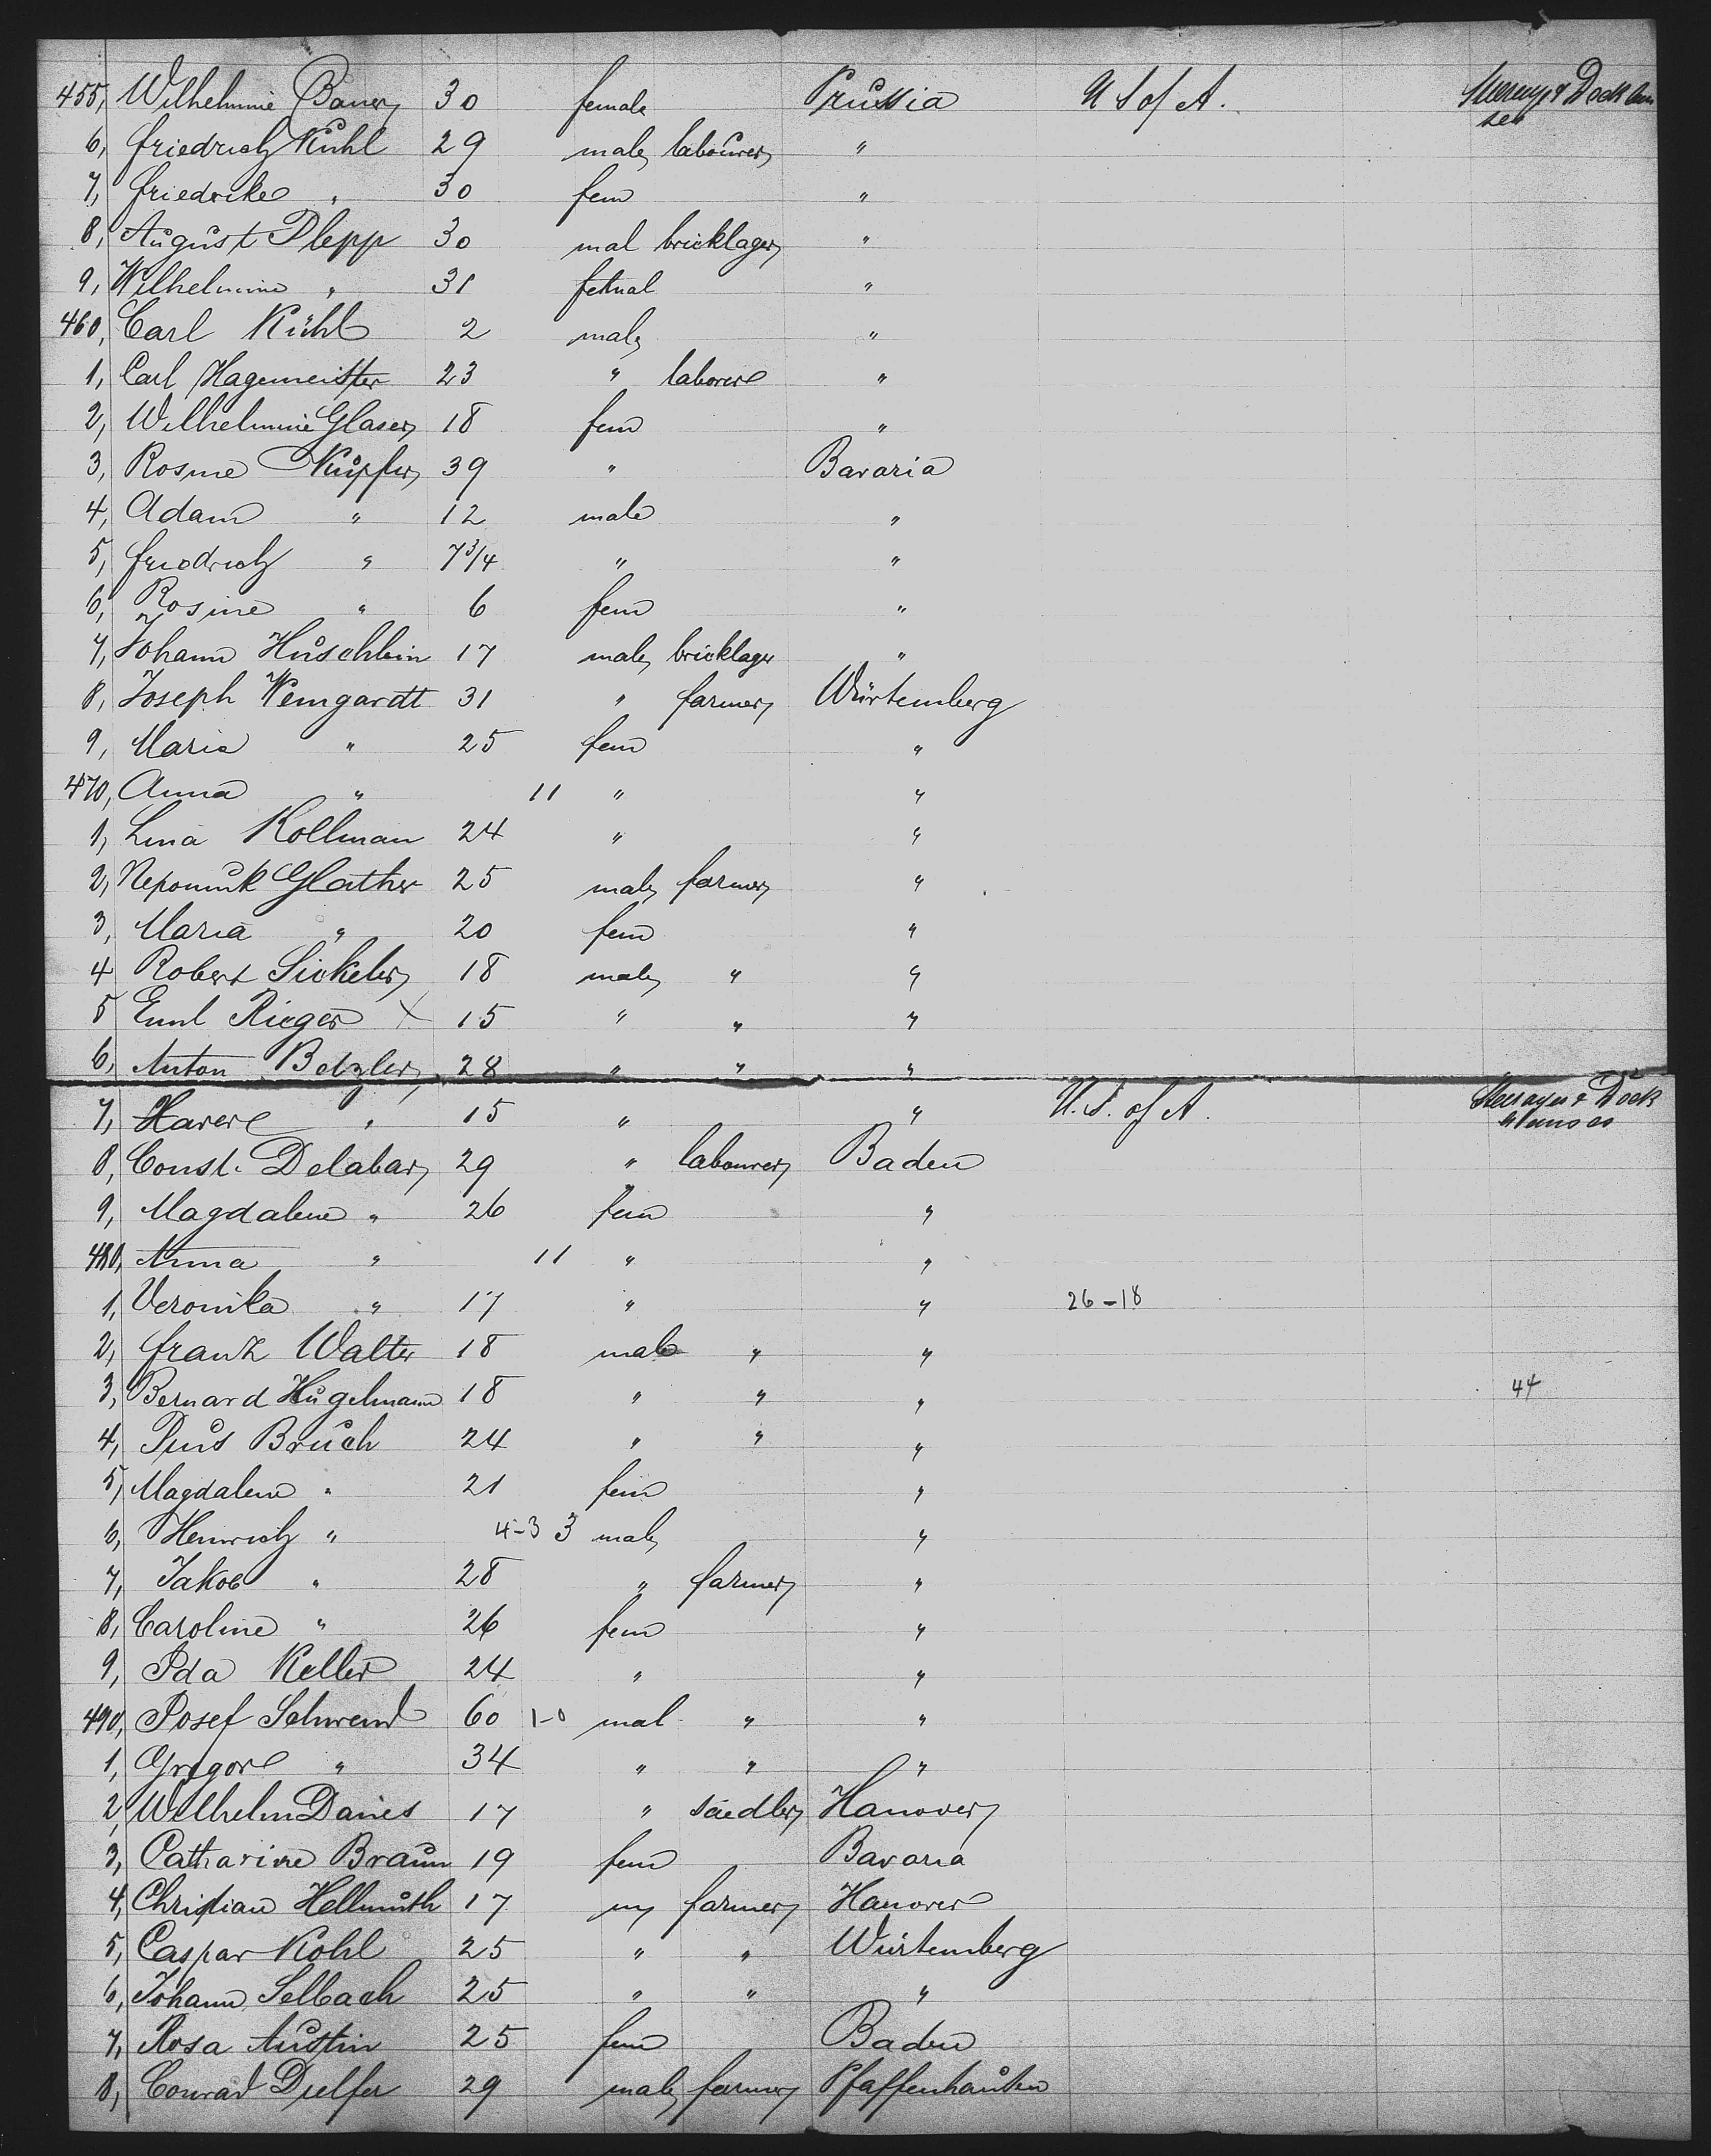 455, Wilhelmine Bauer 30 female Prussia U S of A. Steerage & Dock
6, Friedrich Kühl 29 male labourer "
7, Friedrike " 30 fem "
8, August Plepp 30 mal bricklager "
9, Wilhelmine " 31 femal "
460, Carl Kühl 2 male "
1, Carl Hagemeister 23 " laborere "
2, Wilhelmine Glaser 18 fem "
3, Rosine Küpfer 39 " Bavaria
4, Adam " 12 male "
5, Friedrich " 7 3/4 " "
6, Rosine " 6 fem "
7, Johann Hüschlein 17 male bricklager "
8, Joseph Weingardt 31 " farmer Würtemberg
9, Maria " 25 fem "
470, Anna " 11 " "
1, Lina Kollman 24 " "
2, Nepomuk Glather 25 male farmer "
3, Maria " 20 fem "
4 Robert Sickeler 18 male " "
5 Emil Rieger X 15 " " "
6, Anton Betzler 28 " " "
7, Xavere " 15 " " U. S. of A. Steerages & Dock
8, Const. Delabar 29 " labourer Baden
9, Magdalene " 26 fem "
480, Anna " 11 " "
1, Veronika " 17 " " 26-18
2, Frank Walter 18 male " "
3, Bernard Hügelmann 18 " " " 44
4, Pius Bruch 24 " " "
5, Magdalene " 21 fem "
6, Heinrich " 4-3 3 male "
7, Jakob " 28 " farmer "
8, Caroline " 26 fem "
9, Ida Keller 24 " "
490, Josef Schwend 60 1-0 mal " "
1, Gregore " 34 " " "
2, Wilhelm Danes 17 " saedler Hanover
3, Catharine Braun 19 fem Bavaria
4, Christian Hellmuth 17 m farmer Hanover
5, Caspar Kohl 25 " " Würtemberg
6, Johann Selbach 25 " " "
7, Rosa Austin 25 fem Baden
8, Conrad Dielfer 29 male farmer Pfaffenhausen